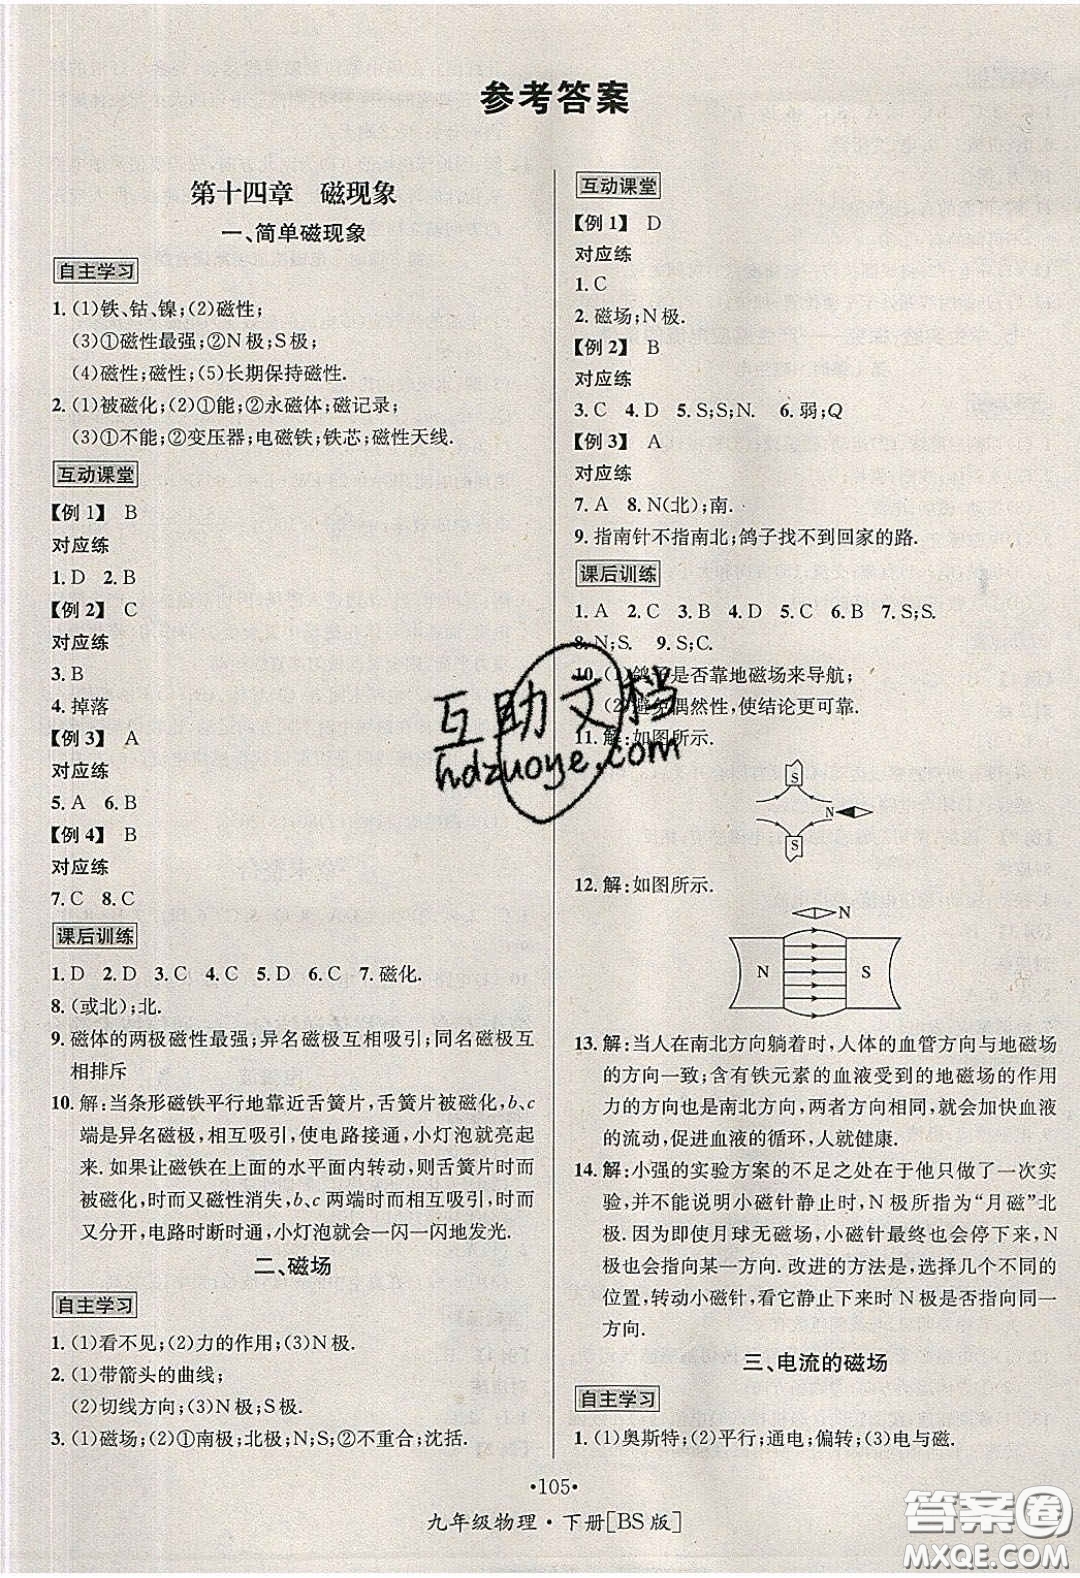 参考答案
第十四章 磁现象
一、简单磁现象
自主学习
1. (1)铁、钴、镍;(2)磁性;
(3)①磁性最强;②N极;S极;
(4)磁性;磁性;(5)长期保持磁性.
2. (1)被磁化;(2)①能;②永磁体;磁记录;
(3)①不能;②变压器;电磁铁;铁芯;磁性天线.
互动课堂
【例1】 B
对应练
1. D 2. B
【例2】 C
对应练
3. B
4. 掉落
【例3】 A
对应练
5. A 6. B
【例4】 B
对应练
7. C 8. C
课后训练
1. D 2. D 3. C 4. C 5. D 6. C 7. 磁化.
8. (或北);北.
9. 磁体的两极磁性最强;异名磁极互相吸引;同名磁极互
相排斥
10. 解:当条形磁铁平行地靠近舌簧片,舌簧片被磁化,b、c
端是异名磁极,相互吸引,使电路接通,小灯泡就亮起
来. 如果让磁铁在上面的水平面内转动,则舌簧片时而
被磁化,时而又磁性消失,b、c两端时而相互吸引,时而
又分开,电路时断时通,小灯泡就会一闪一闪地发光.
二、磁场
自主学习
1. (1)看不见;(2)力的作用;(3)N极.
2. (1)带箭头的曲线;
(2)切线方向;(3)N极;S极.
3. (1)磁场;(2)①南极;北极;N;S;②不重合;沈括.
互动课堂
【例1】 D
对应练
1. C
2. 磁场;N极.
【例2】 B
对应练
3. C 4. D 5. S;S;N. 6. 弱;Q
【例3】 A
对应练
7. A 8. N(北);南.
9. 指南针不指南北;鸽子找不到回家的路.
课后训练
1. A 2. C 3. B 4. D 5. C 6. B 7. S;S.
8. N;S. 9. S;C.
10. (1)鸽子是否靠地磁场来导航;
(2)避免偶然性,使结论更可靠.
11. 解:如图所示.
S
N
S
12. 解:如图所示.
N
N S
13. 解:当人在南北方向躺着时,人体的血管方向与地磁场
的方向一致;含有铁元素的血液受到的地磁场的作用
力的方向也是南北方向,两者方向相同,就会加快血液
的流动,促进血液的循环,人就健康.
14. 解:小强的实验方案的不足之处在于他只做了一次实
验,并不能说明小磁针静止时,N极所指为“月磁”北
极. 因为即使月球无磁场,小磁针最终也会停下来,N
极也会指向某一方向. 改进的方法是,选择几个不同的
位置,转动小磁针,看它静止下来时N极是否指向同一
方向.
三、电流的磁场
自主学习
1. (1)奥斯特;(2)平行;通电;偏转;(3)电与磁.
互助文档
hdzuoye.com
·105·
九年级物理·下册[BS版]
答案圈
MXQE.COM